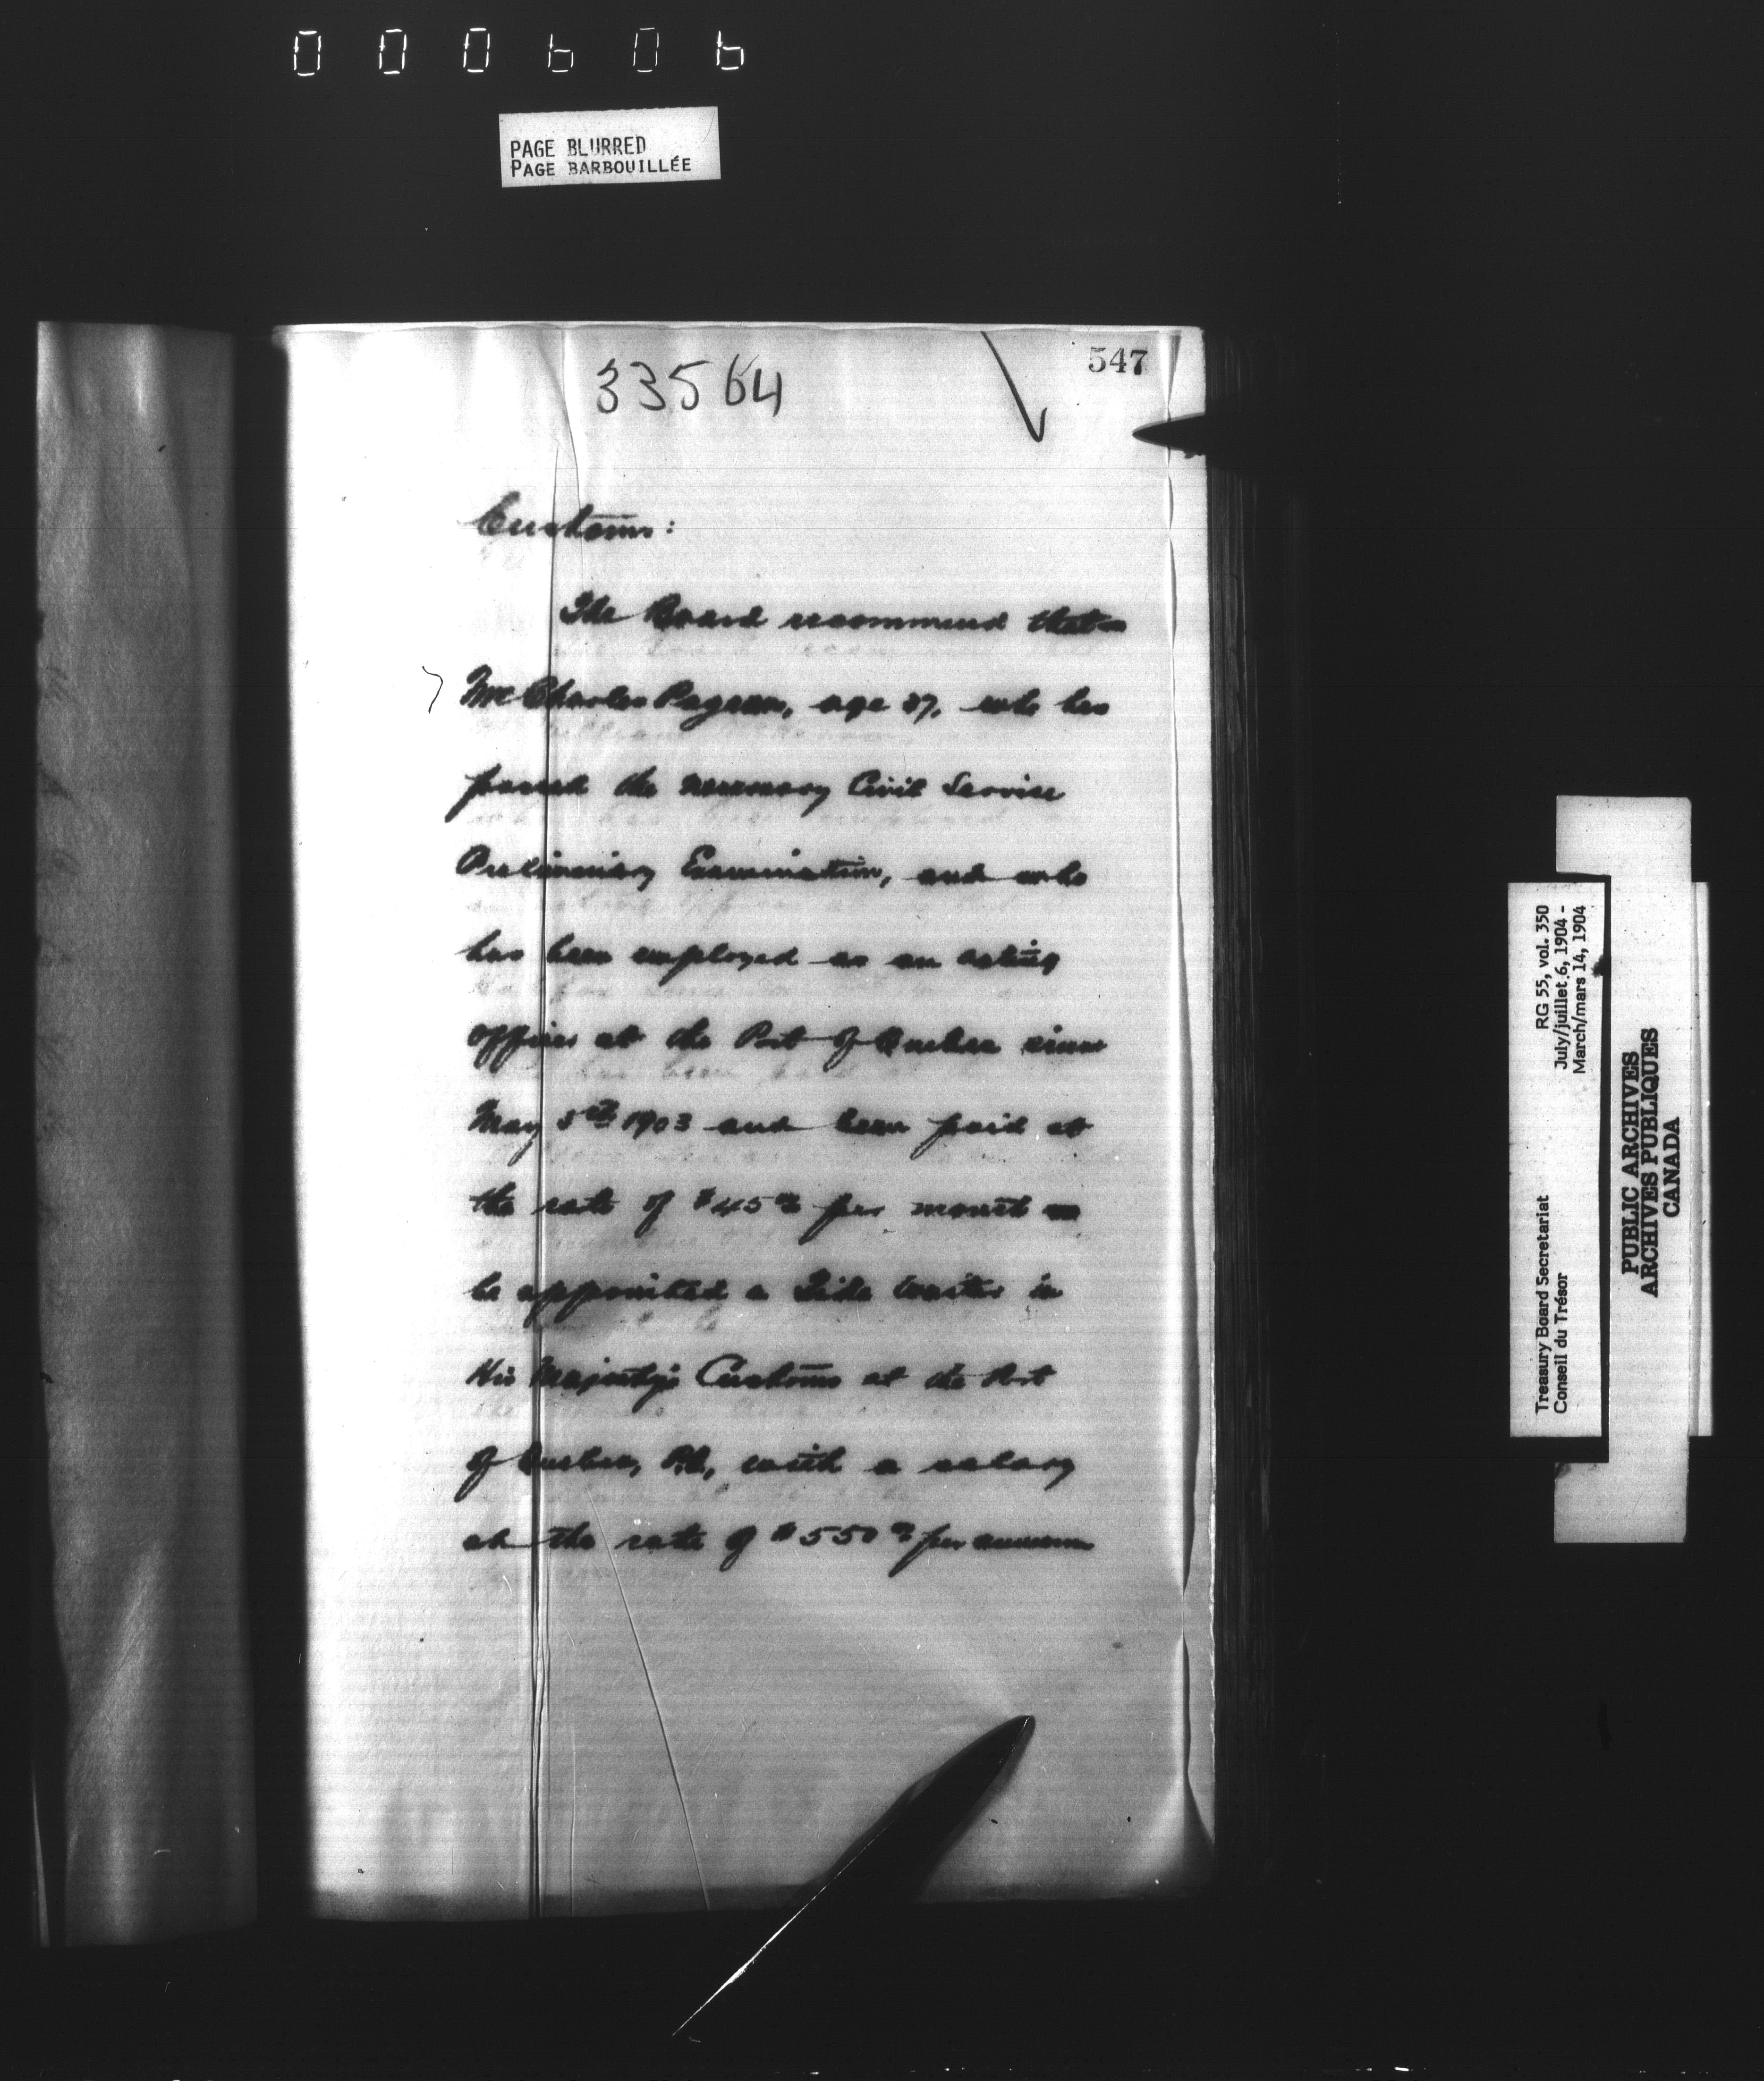 000606
PAGE BLURRED
PAGE BARBOUILLÉE
547
33564
Customs:
The Board recommend that
Mr Charles Pageau, age 37, who has
passed the necessary Civil Service
Preliminary Examination, and who
has been employed as an acting
officer at the Port of Quebec since
May 5th 1903 and been paid at
the rate of $45 00 per month
be appointed a Tide Waiter in
His Majesty's Customs at the Port
of Quebec, P.Q., with a salary
at the rate of $550 00 per annum
RG 55, vol. 350
July/juillet 6, 1904 -
March/mars 14, 1904
Treasury Board Secretariat
Conseil du Trésor
PUBLIC ARCHIVES
ARCHIVES PUBLIQUES
CANADA